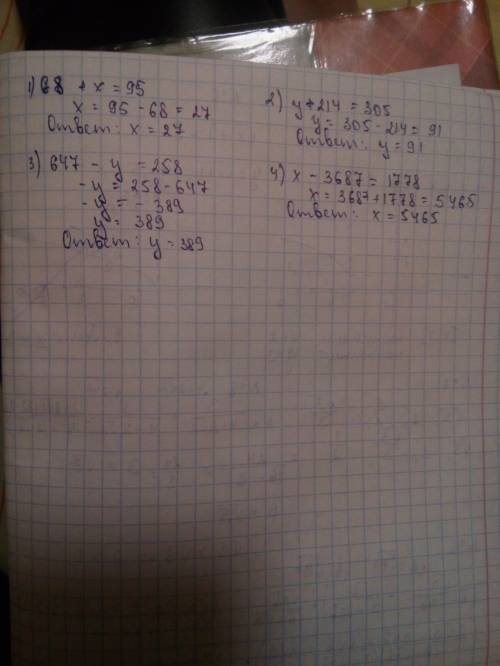 1) 68 + x = 95
x = 95 - 68 = 27
Ответ: x = 27
2) y + 214 = 305
y = 305 - 214 = 91
Ответ: y = 91
3) 647 - y = 258
-y = 258-647
-y = - 389
y = 389
Ответ: y = 389
4) x - 3687 = 1778
x = 3687+1778 = 5465
Ответ: x = 5465